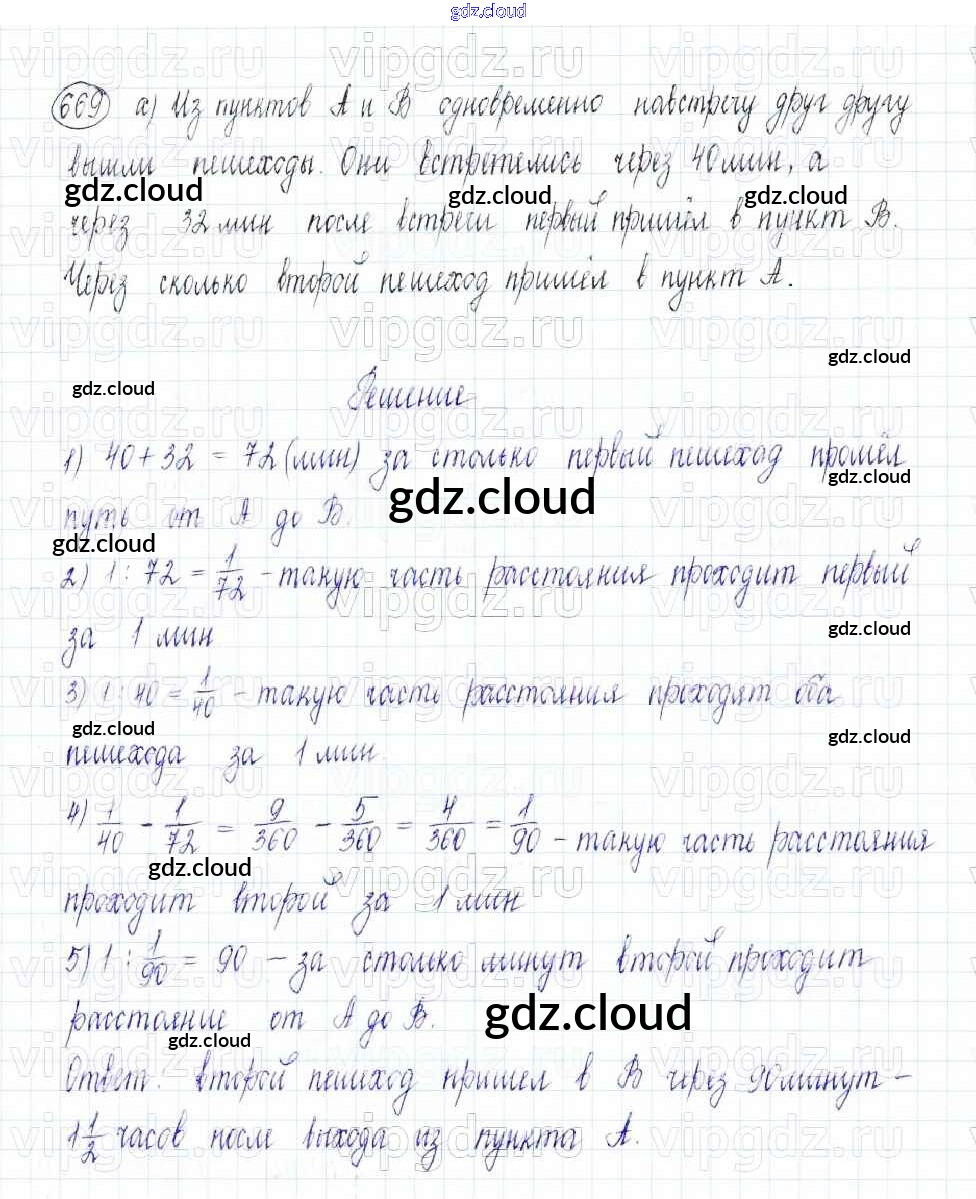 gdz.cloud
669 а) Из пунктов А и В одновременно навстречу друг другу
вышли пешеходы. Они встретились через 40 мин, а
gdz.cloud gdz.cloud gdz.cloud
через 32 мин после встречи первый пришёл в пункт В.
Через сколько второй пешеход пришёл в пункт А.
gdz.cloud
gdz.cloud
Решение
1) 40 + 32 = 72 (мин) за столько первый пешеход прошёл
gdz.cloud
gdz.cloud
путь от А до В.
gdz.cloud
2) 1 : 72 = 1/72 - такую часть расстояния проходит первый
за 1 мин
gdz.cloud
3) 1 : 40 = 1/40 - такую часть расстояния проходят оба
gdz.cloud gdz.cloud
пешехода за 1 мин.
4) 1/40 - 1/72 = 9/360 - 5/360 = 4/360 = 1/90 - такую часть расстояния
gdz.cloud
проходит второй за 1 мин
5) 1 : 1/90 = 90 - за столько минут второй проходит
gdz.cloud
расстояние от А до В.
gdz.cloud
Ответ: второй пешеход пришел в В через 90 минут -
1 1/2 часов после выхода из пункта А.
vipgdz.ru